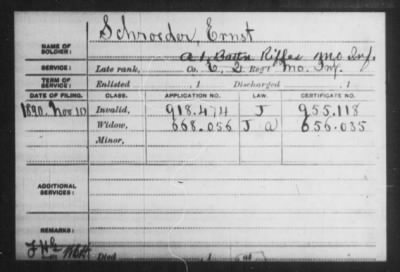 Schroeder, Ernst
NAME OF SOLDIER:
A 1. Battn Rifles Mo Inf.
SERVICE: Late rank, Co. C, 2 Reg't Mo. Inf.
TERM OF SERVICE: Enlisted , 1 Discharged , 1
DATE OF FILING. CLASS. APPLICATION NO. LAW. CERTIFICATE NO.
1890. Nov. 10 Invalid, 918.474 J 955.118
Widow, 668.056 J a 656.035
Minor,
ADDITIONAL SERVICES:
REMARKS:
Died , 1 , at